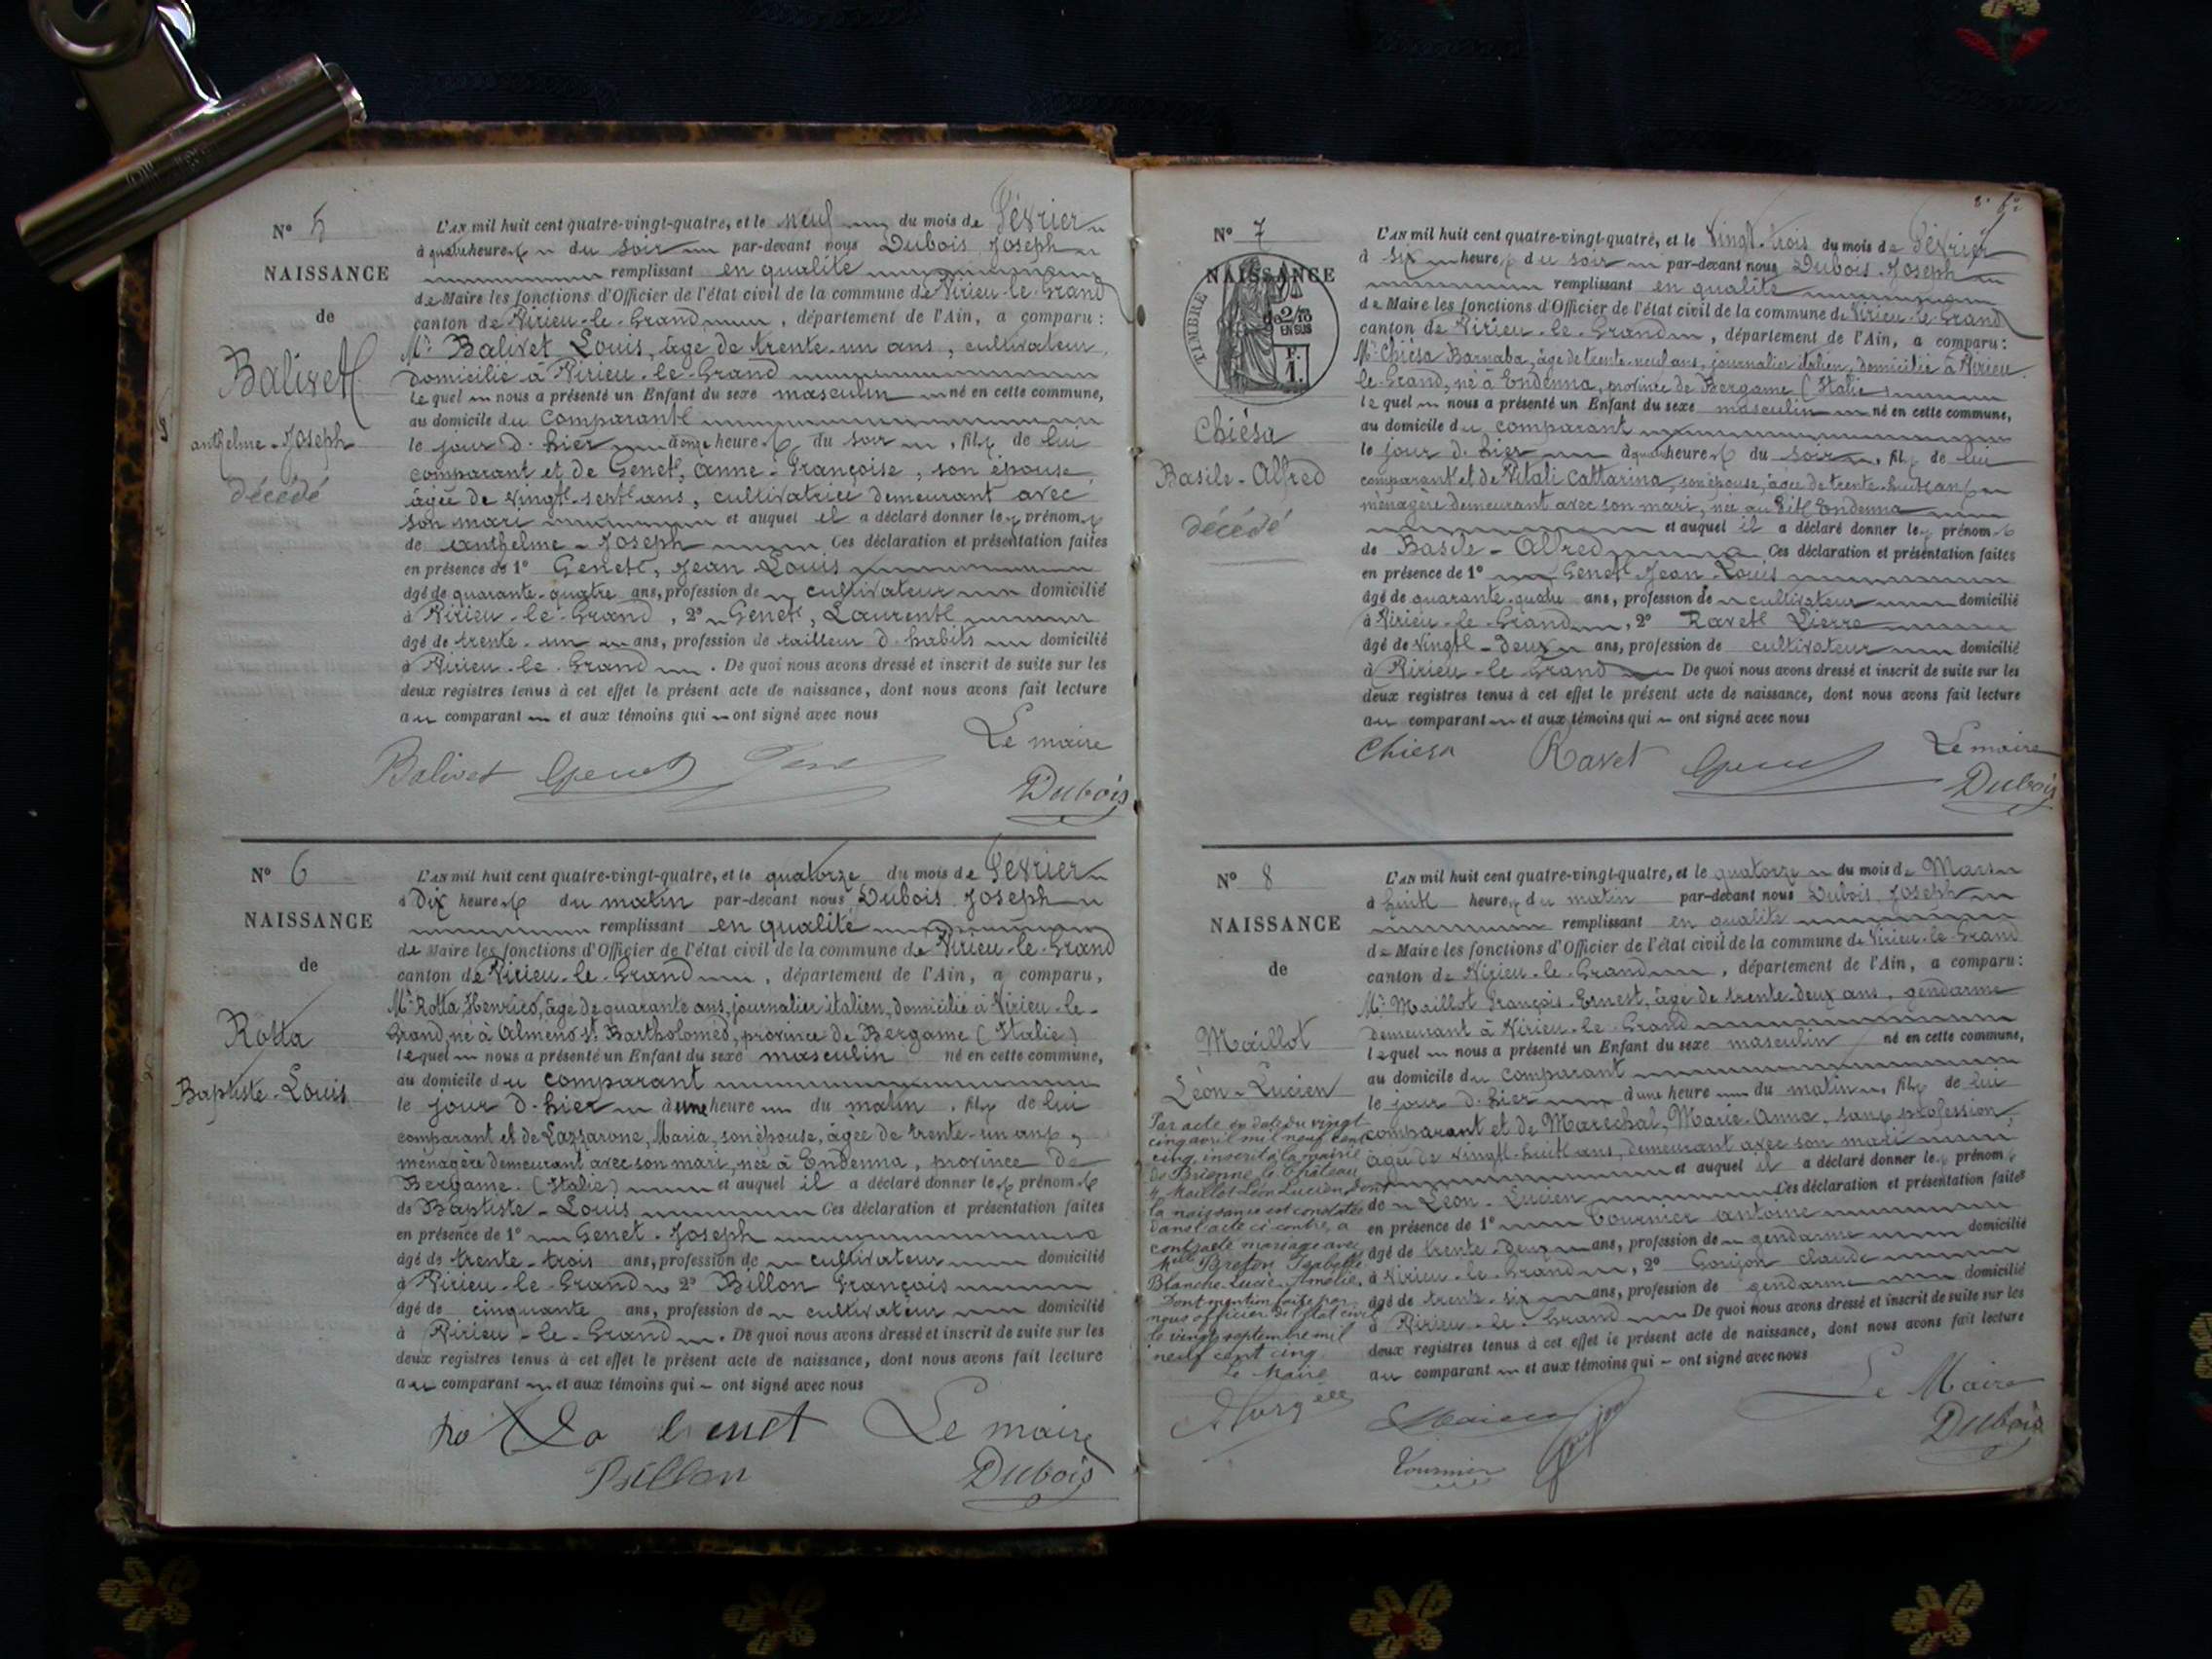 N° 5
NAISSANCE
de
Balivet
anthelme - Joseph
décédé
L'AN mil huit cent quatre-vingt-quatre, et le neuf du mois de Février
à quatre heures du soir par-devant nous Dubois Joseph
remplissant en qualité
de Maire les fonctions d'Officier de l'état civil de la commune de Virieu-le-Grand
canton de Virieu-le-Grand, département de l'Ain, a comparu :
Mr Balivet Louis, âgé de trente-un ans, cultivateur,
domicilié à Virieu-le-Grand
lequel nous a présenté un Enfant du sexe masculin né en cette commune,
au domicile du Comparant
le jour d'hier à onze heures du soir, fils de lui
comparant et de Genet, anne-Françoise, son épouse,
âgée de vingt-sept ans, cultivatrice demeurant avec
son mari et auquel il a déclaré donner les prénoms
de anthelme - Joseph Ces déclaration et présentation faites
en présence de 1° Genet, Jean Louis
âgé de quarante-quatre ans, profession de cultivateur domicilié
à Virieu-le-Grand, 2° Genet, Laurent
âgé de trente-un ans, profession de tailleur d'habits domicilié
à Virieu-le-Grand. De quoi nous avons dressé et inscrit de suite sur les
deux registres tenus à cet effet le présent acte de naissance, dont nous avons fait lecture
au comparant et aux témoins qui ont signé avec nous
Le maire
Balivet Genet
Dubois
N° 6
NAISSANCE
de
Rotta
Baptiste-Louis
L'AN mil huit cent quatre-vingt-quatre, et le quatorze du mois de Février
à Dix heures du matin par-devant nous Dubois Joseph
remplissant en qualité
de Maire les fonctions d'Officier de l'état civil de la commune de Virieu-le-Grand
canton de Virieu-le-Grand, département de l'Ain, a comparu,
Mr Rotta, Henrico, âgé de quarante ans, journalier italien, domicilié à Virieu-le-
Grand, né à Almeno St Bartholomeo, province de Bergame (Italie)
lequel nous a présenté un Enfant du sexe masculin né en cette commune,
au domicile du comparant
le jour d'hier à une heure du matin, fils de lui
comparant et de Lazzarone, Maria, son épouse, âgée de trente-un ans,
ménagère demeurant avec son mari, née à Endenna, province de
Bergame. (Italie) et auquel il a déclaré donner les prénoms
de Baptiste-Louis Ces déclaration et présentation faites
en présence de 1° Genet. Joseph
âgé de trente-trois ans, profession de cultivateur domicilié
à Virieu-le-Grand 2° Billon François
âgé de cinquante ans, profession de cultivateur domicilié
à Virieu-le-Grand. De quoi nous avons dressé et inscrit de suite sur les
deux registres tenus à cet effet le présent acte de naissance, dont nous avons fait lecture
au comparant et aux témoins qui ont signé avec nous
Rotta Genet Le maire
Billon Dubois
N° 7
NAISSANCE
de
TIMBRE
2/10
EN SUS
F.
1.
Chiésa
Basile-Alfred
décédé
L'AN mil huit cent quatre-vingt-quatre, et le Vingt-trois du mois de Février
à six heures du soir par-devant nous Dubois Joseph
remplissant en qualité
de Maire les fonctions d'Officier de l'état civil de la commune de Virieu-le-Grand
canton de Virieu-le-Grand, département de l'Ain, a comparu :
Mr Chiésa Barnaba, âgé de trente-neuf ans, journalier italien, domicilié à Virieu
le-Grand, né à Endenna, province de Bergame (Italie)
lequel nous a présenté un Enfant du sexe masculin né en cette commune,
au domicile du comparant
le jour d'hier à quatre heures du soir, fils de lui
comparant et de Vitali Cattarina, son épouse, âgée de trente-huit ans
ménagère demeurant avec son mari, née au dit Endenna
et auquel il a déclaré donner les prénoms
de Basile-Alfred Ces déclaration et présentation faites
en présence de 1° Genet Jean-Louis
âgé de quarante-quatre ans, profession de cultivateur domicilié
à Virieu-le-Grand, 2° Ravet Pierre
âgé de vingt-deux ans, profession de cultivateur domicilié
à Virieu-le-Grand De quoi nous avons dressé et inscrit de suite sur les
deux registres tenus à cet effet le présent acte de naissance, dont nous avons fait lecture
au comparant et aux témoins qui ont signé avec nous
Chiesa Ravet Genet Le maire
Dubois
N° 8
NAISSANCE
de
Maillot
Léon-Lucien
Par acte en date du vingt
cinq avril mil neuf cent
cinq, inscrit à la mairie
de Brienne le Château
Maillot Léon Lucien dont
la naissance est constatée
dans l'acte ci-contre, a
contracté mariage avec
Melle Breton Isabelle
Blanche-Lucie-Amélie.
Dont mention faite par
nous officier de l'état civil
le vingt septembre mil
neuf cent cinq
Le Maire
L'AN mil huit cent quatre-vingt-quatre, et le quatorze du mois de Mars
à huit heures du matin par-devant nous Dubois, Joseph
remplissant en qualité
de Maire les fonctions d'Officier de l'état civil de la commune de Virieu-le-Grand
canton de Virieu-le-Grand, département de l'Ain, a comparu :
Mr Maillot François-Ernest, âgé de trente-deux ans, gendarme
demeurant à Virieu-le-Grand
lequel nous a présenté un Enfant du sexe masculin né en cette commune,
au domicile du comparant
le jour d'hier à une heure du matin, fils de lui
comparant et de Maréchal, Marie-Anna, sans profession,
âgée de vingt-huit ans, demeurant avec son mari
et auquel il a déclaré donner les prénoms
de Léon-Lucien Ces déclaration et présentation faites
en présence de 1° Tournier antoine
âgé de trente-deux ans, profession de gendarme domicilié
à Virieu-le-Grand, 2° Goujon claude
âgé de trente-six ans, profession de gendarme domicilié
à Virieu-le-Grand De quoi nous avons dressé et inscrit de suite sur les
deux registres tenus à cet effet le présent acte de naissance, dont nous avons fait lecture
au comparant et aux témoins qui ont signé avec nous
Le Maire
Tournier
Dubois